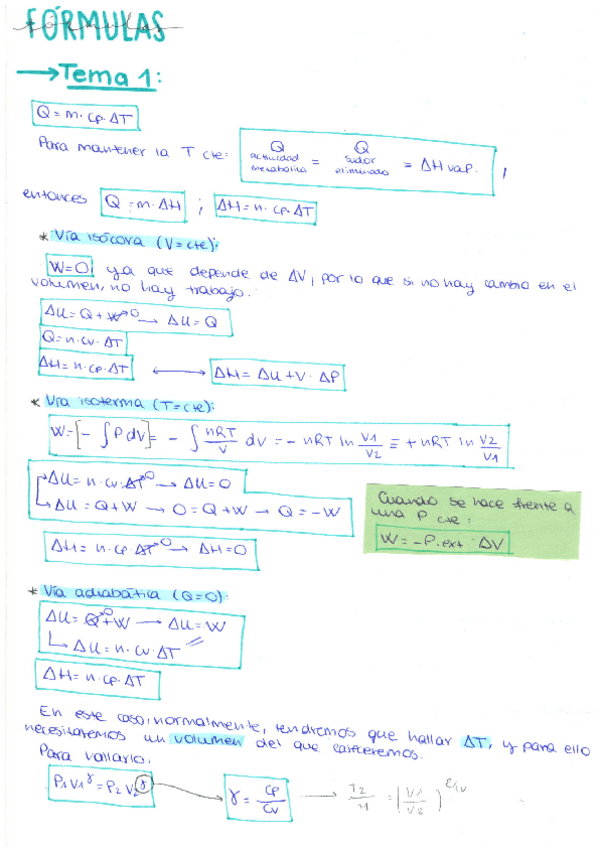 FÓRMULAS
→ Tema 1:
Q = m · cp · ΔT
Para mantener la T cte: Q actividad metabólica = Q sudor eliminado = ΔH vap. ,
entonces Q = m · ΔH ; ΔH = n · cp · ΔT
* Vía isócora (V = cte):
W = 0 ya que depende de ΔV, por lo que si no hay cambio en el
volumen, no hay trabajo.
ΔU = Q + W→0 → ΔU = Q
Q = n · cv · ΔT
ΔH = n · cp · ΔT ↔ ΔH = ΔU + V · ΔP
* Vía isoterma (T = cte):
W = [- ∫ P dV] = - ∫ nRT/V dv = - nRT ln V1/V2 = + nRT ln V2/V1
ΔU = n · cv · ΔT→0 → ΔU = 0
ΔU = Q + W → 0 = Q + W → Q = -W
ΔH = n · cp · ΔT→0 → ΔH = 0
Cuando se hace frente a
una P cte:
W = -P.ext · ΔV
* Vía adiabática (Q = 0):
ΔU = Q→0 + W → ΔU = W
ΔU = n · cv · ΔT
ΔH = n · cp · ΔT
En este caso, normalmente, tendremos que hallar ΔT, y para ello
necesitaremos un volumen del que careceremos.
Para hallarlo,
P1 V1^γ = P2 V2^γ → γ = Cp/Cv → T2/T1 = (V1/V2)^R/cv